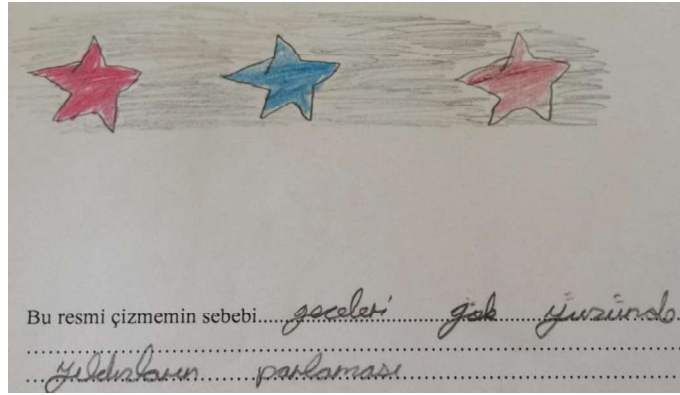 Bu resmi çizmemin sebebi.....geceleri gök yüzünde
yıldızların parlaması